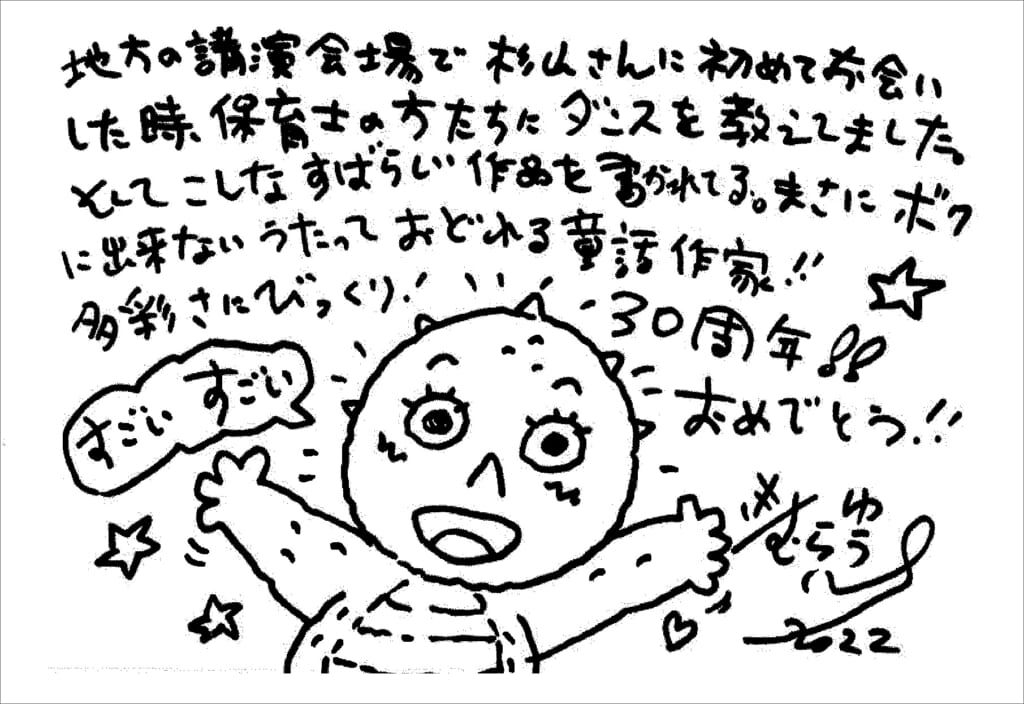 地方の講演会場で 杉山さんに 初めてお会い
した時、保育士の方たちに ダンスを教えてました。
そして こんな すばらしい 作品を 書かれてる。まさに ボク
に出来ない うたって おどれる 童話作家!!
多彩さにびっくり!
30周年!!
おめでとう!!
すごい すごい
きむら ゆう
2022